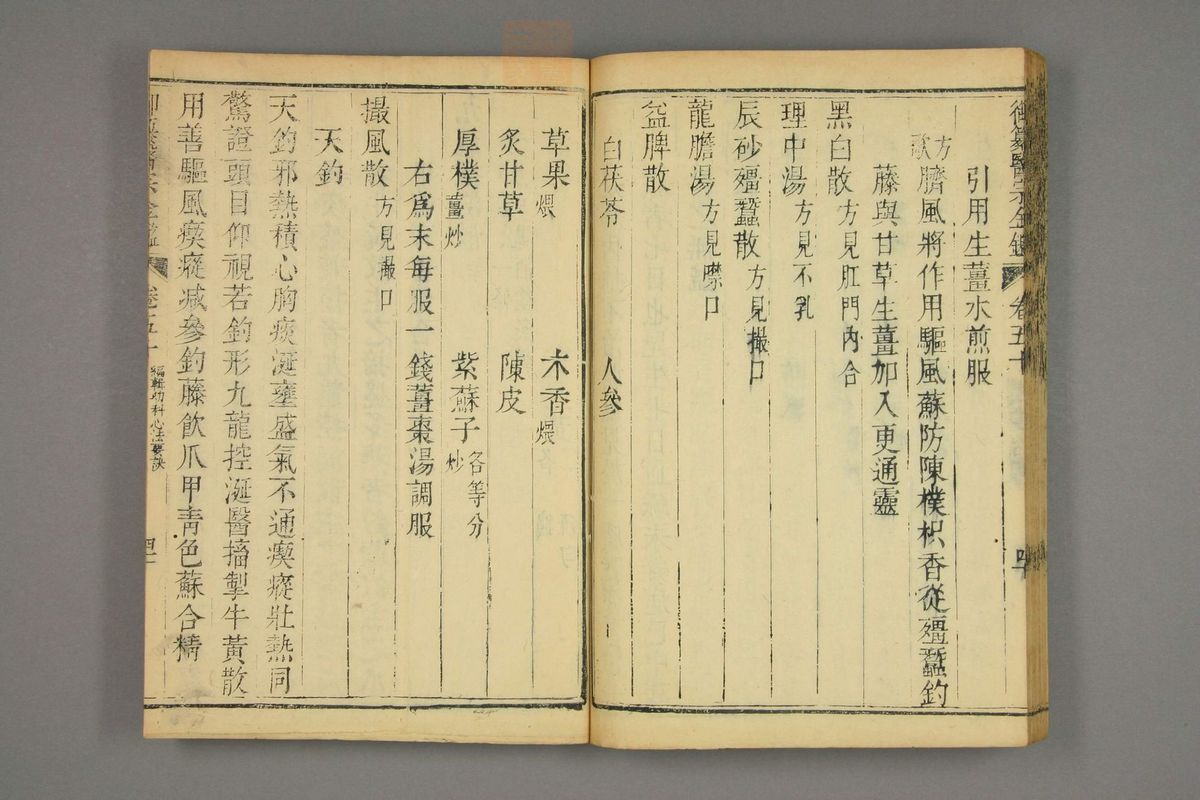 御纂醫宗金鑑 卷五十
引用生薑水煎服
方歌 臍風將作用驅風蘇防陳樸枳香從殭蠶釣
藤與甘草生薑加入更通靈
黑白散 方見肛門內合
理中湯 方見不乳
辰砂殭蠶散 方見撮口
龍膽湯 方見噤口
益脾散
白茯苓 人參
草果煨 木香煨
炙甘草 陳皮
厚樸薑炒 紫蘇子炒 各等分
右爲末每服一錢薑棗湯調服
撮風散 方見撮口
天釣
天釣邪熱積心胸痰涎壅盛氣不通瘈瘲壯熱同
驚證頭目仰視若釣形九龍控涎醫搐掣牛黃散
用善驅風瘈瘲减參釣藤飲爪甲青色蘇合精
卷五十 編輯幼科心法要訣